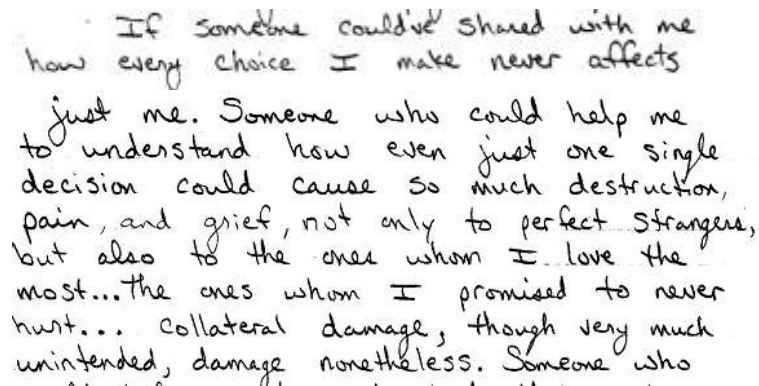 If someone could've shared with me
how every choice I make never affects
just me. Someone who could help me
to understand how even just one single
decision could cause so much destruction,
pain, and grief, not only to perfect strangers,
but also to the ones whom I love the
most...the ones whom I promised to never
hurt... collateral damage, though very much
unintended, damage nonetheless. Someone who